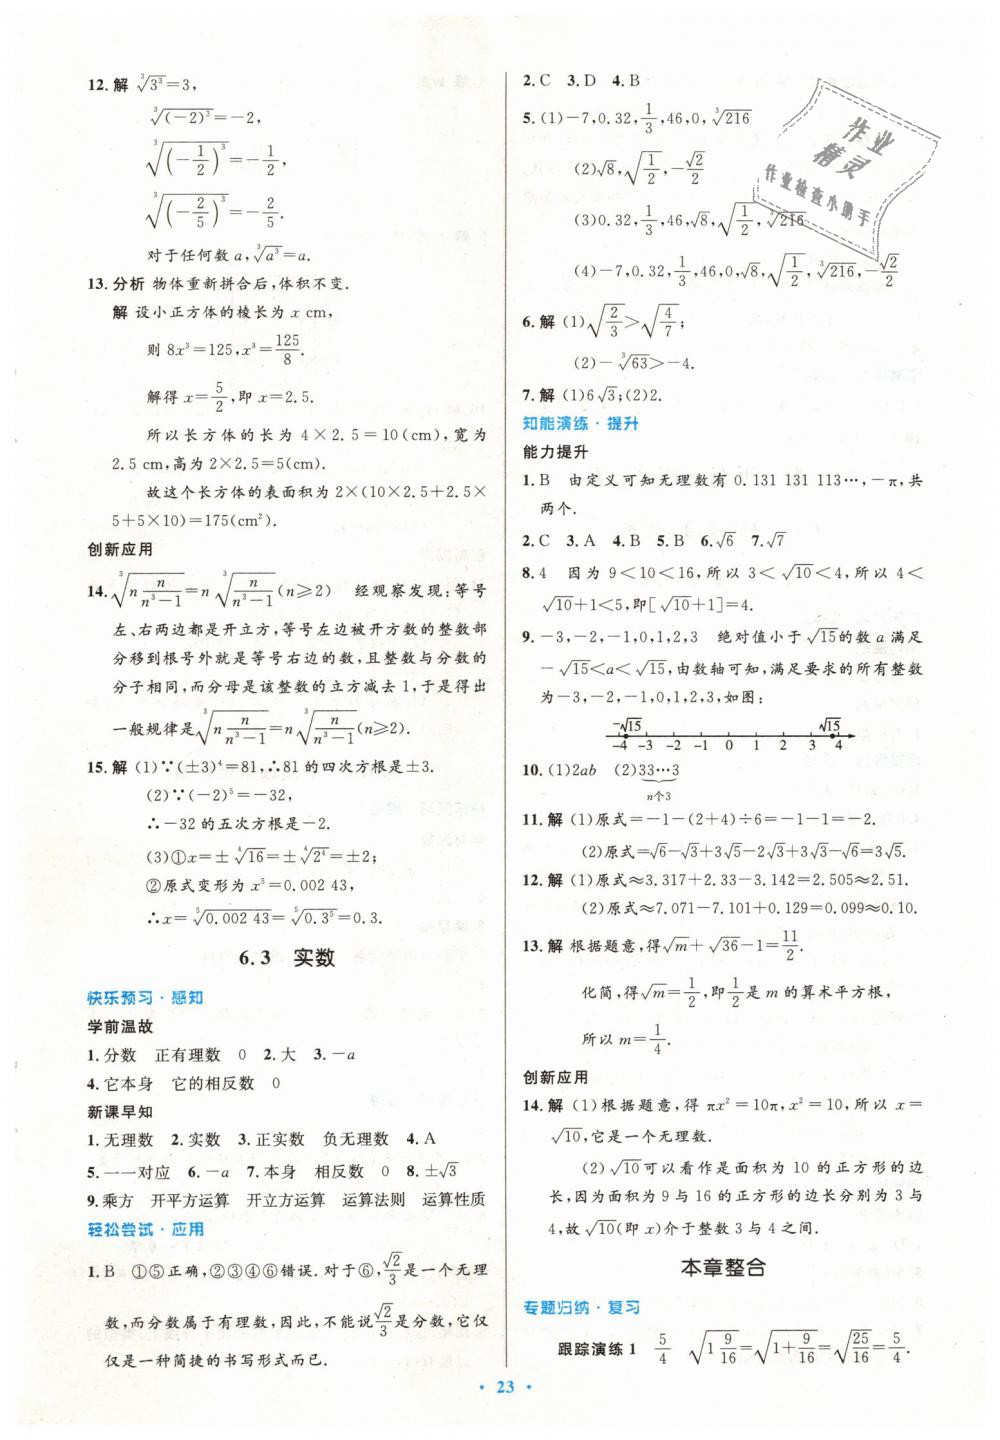 12.解 ∛3³=3,
∛(-2)³=-2,
∛(-1/2)³=-1/2,
∛(-2/5)³=-2/5.
对于任何数a,∛a³=a.
13.分析 物体重新拼合后,体积不变.
解 设小正方体的棱长为x cm,
则8x³=125,x³=125/8.
解得x=5/2,即x=2.5.
所以长方体的长为4×2.5=10(cm),宽为
2.5 cm,高为2×2.5=5(cm).
故这个长方体的表面积为2×(10×2.5+2.5×
5+5×10)=175(cm²).
创新应用
14.∛(n n/(n³-1))=n∛(n/(n³-1))(n≥2) 经观察发现:等号
左、右两边都是开立方,等号左边被开方数的整数部
分移到根号外就是等号右边的数,且整数与分数的
分子相同,而分母是该整数的立方减去1,于是得出
一般规律是∛(n n/(n³-1))=n∛(n/(n³-1))(n≥2).
15.解 (1)∵(±3)⁴=81,∴81的四次方根是±3.
(2)∵(-2)⁵=-32,
∴-32的五次方根是-2.
(3)①x=±∜16=±∜2⁴=±2;
②原式变形为x⁵=0.002 43,
∴x=⁵√0.002 43=⁵√0.3⁵=0.3.
6.3 实数
快乐预习·感知
学前温故
1.分数 正有理数 0 2.大 3.-a
4.它本身 它的相反数 0
新课早知
1.无理数 2.实数 3.正实数 负无理数 4.A
5.一一对应 6.-a 7.本身 相反数 0 8.±√3
9.乘方 开平方运算 开立方运算 运算法则 运算性质
轻松尝试·应用
1.B ①⑤正确,②③④⑥错误.对于⑥,√2/3是一个无理
数,而分数属于有理数,因此,不能说√2/3是分数,它仅
仅是一种简捷的书写形式而已.
2.C 3.D 4.B
5.(1)-7,0.32,1/3,46,0,∛216
(2)√8,√(1/2),-√2/2
(3)0.32,1/3,46,√8,√(1/2),∛216
(4)-7,0.32,1/3,46,0,√8,√(1/2),∛216,-√2/2
6.解 (1)√(2/3)>√(4/7);
(2)-∛63>-4.
7.解 (1)6√3;(2)2.
知能演练·提升
能力提升
1.B 由定义可知无理数有0.131 131 113…,-π,共
两个.
2.C 3.A 4.B 5.B 6.√6 7.√7
8.4 因为9<10<16,所以3<√10<4,所以4<
√10+1<5,即[√10+1]=4.
9.-3,-2,-1,0,1,2,3 绝对值小于√15的数a满足
-√15<a<√15,由数轴可知,满足要求的所有整数
为-3,-2,-1,0,1,2,3,如图:
-√15 √15
-4 -3 -2 -1 0 1 2 3 4
10.(1)2ab (2)33…3
n个3
11.解 (1)原式=-1-(2+4)÷6=-1-1=-2.
(2)原式=√6-√3+3√5-2√3+3√3-√6=3√5.
12.解 (1)原式≈3.317+2.33-3.142=2.505≈2.51.
(2)原式≈7.071-7.101+0.129=0.099≈0.10.
13.解 根据题意,得√m+√36-1=11/2.
化简,得√m=1/2,即1/2是m的算术平方根,
所以m=1/4.
创新应用
14.解 (1)根据题意,得πx²=10π,x²=10,所以x=
√10,它是一个无理数.
(2)√10可以看作是面积为10的正方形的边
长,因为面积为9与16的正方形的边长分别为3与
4,故√10(即x)介于整数3与4之间.
本章整合
专题归纳·复习
跟踪演练1 5/4 √(1 9/16)=√(1+9/16)=√(25/16)=5/4.
·23·
作业
精灵
作业检查小助手